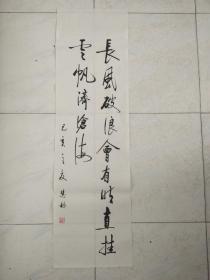 長風破浪會有時直挂
雲帆濟滄海
己亥之夏